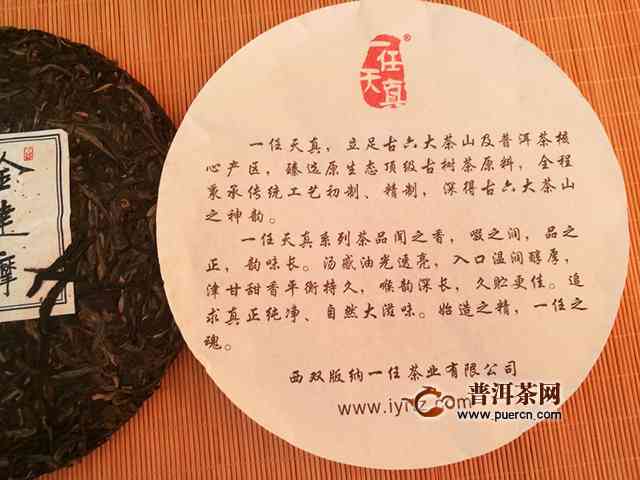 一任
天真
®
一任天真，立足古六大茶山及普洱茶核
心产区，臻选原生态顶级古树茶原料，全程
秉承传统工艺初制、精制，深得古六大茶山
之神韵。
一任天真系列茶品闻之香，啜之润，品之
正，韵味长。汤感油光透亮，入口温润醇厚，
津甘甜香平衡持久，喉韵深长，久贮更佳。追
求真正纯净、自然大滋味。始造之精，一任之
魂。
西双版纳一任茶业有限公司
普洱茶网
www.puercn.com
达摩